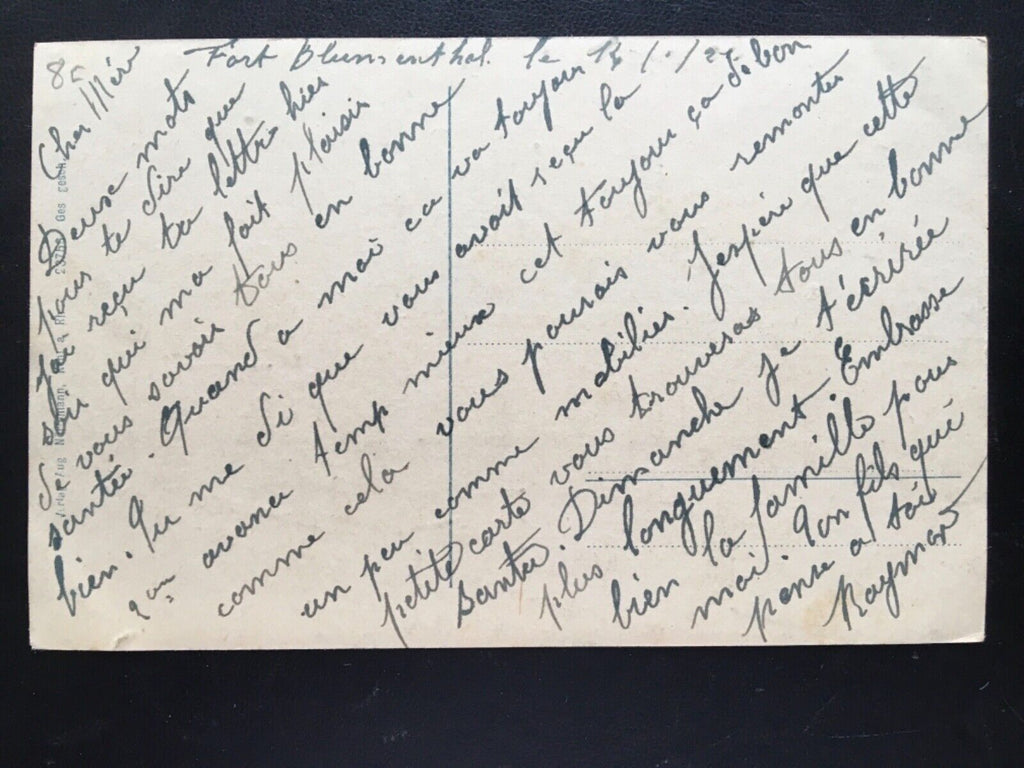 85
Fort Blumenthal. le
Cher Mère
Deux mots
pour te dire que
J'ai reçu ta lettre hier
soir qui ma fait plaisir
de vous savoir tous en bonne
santée. Quand a moi ca va toujours
bien. Tu me di que vous avait reçu la
avance temp mieux cet toujour ça de bon
comme cela vous pourais vous remonter
un peu comme mobilier. J'espère que cette
petite carte vous trouveras tous en bonne
santée. Dimanche je t'écrirée
plus longuement. Embrasse
bien la famille pour
moi. Ton fils qui
pense a toi
Raymond
Ges gesch.